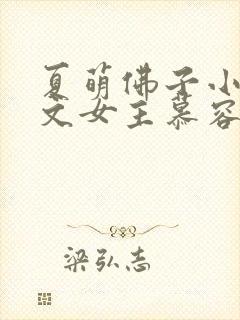 夏萌佛子小
文女主慕容
梁弘志